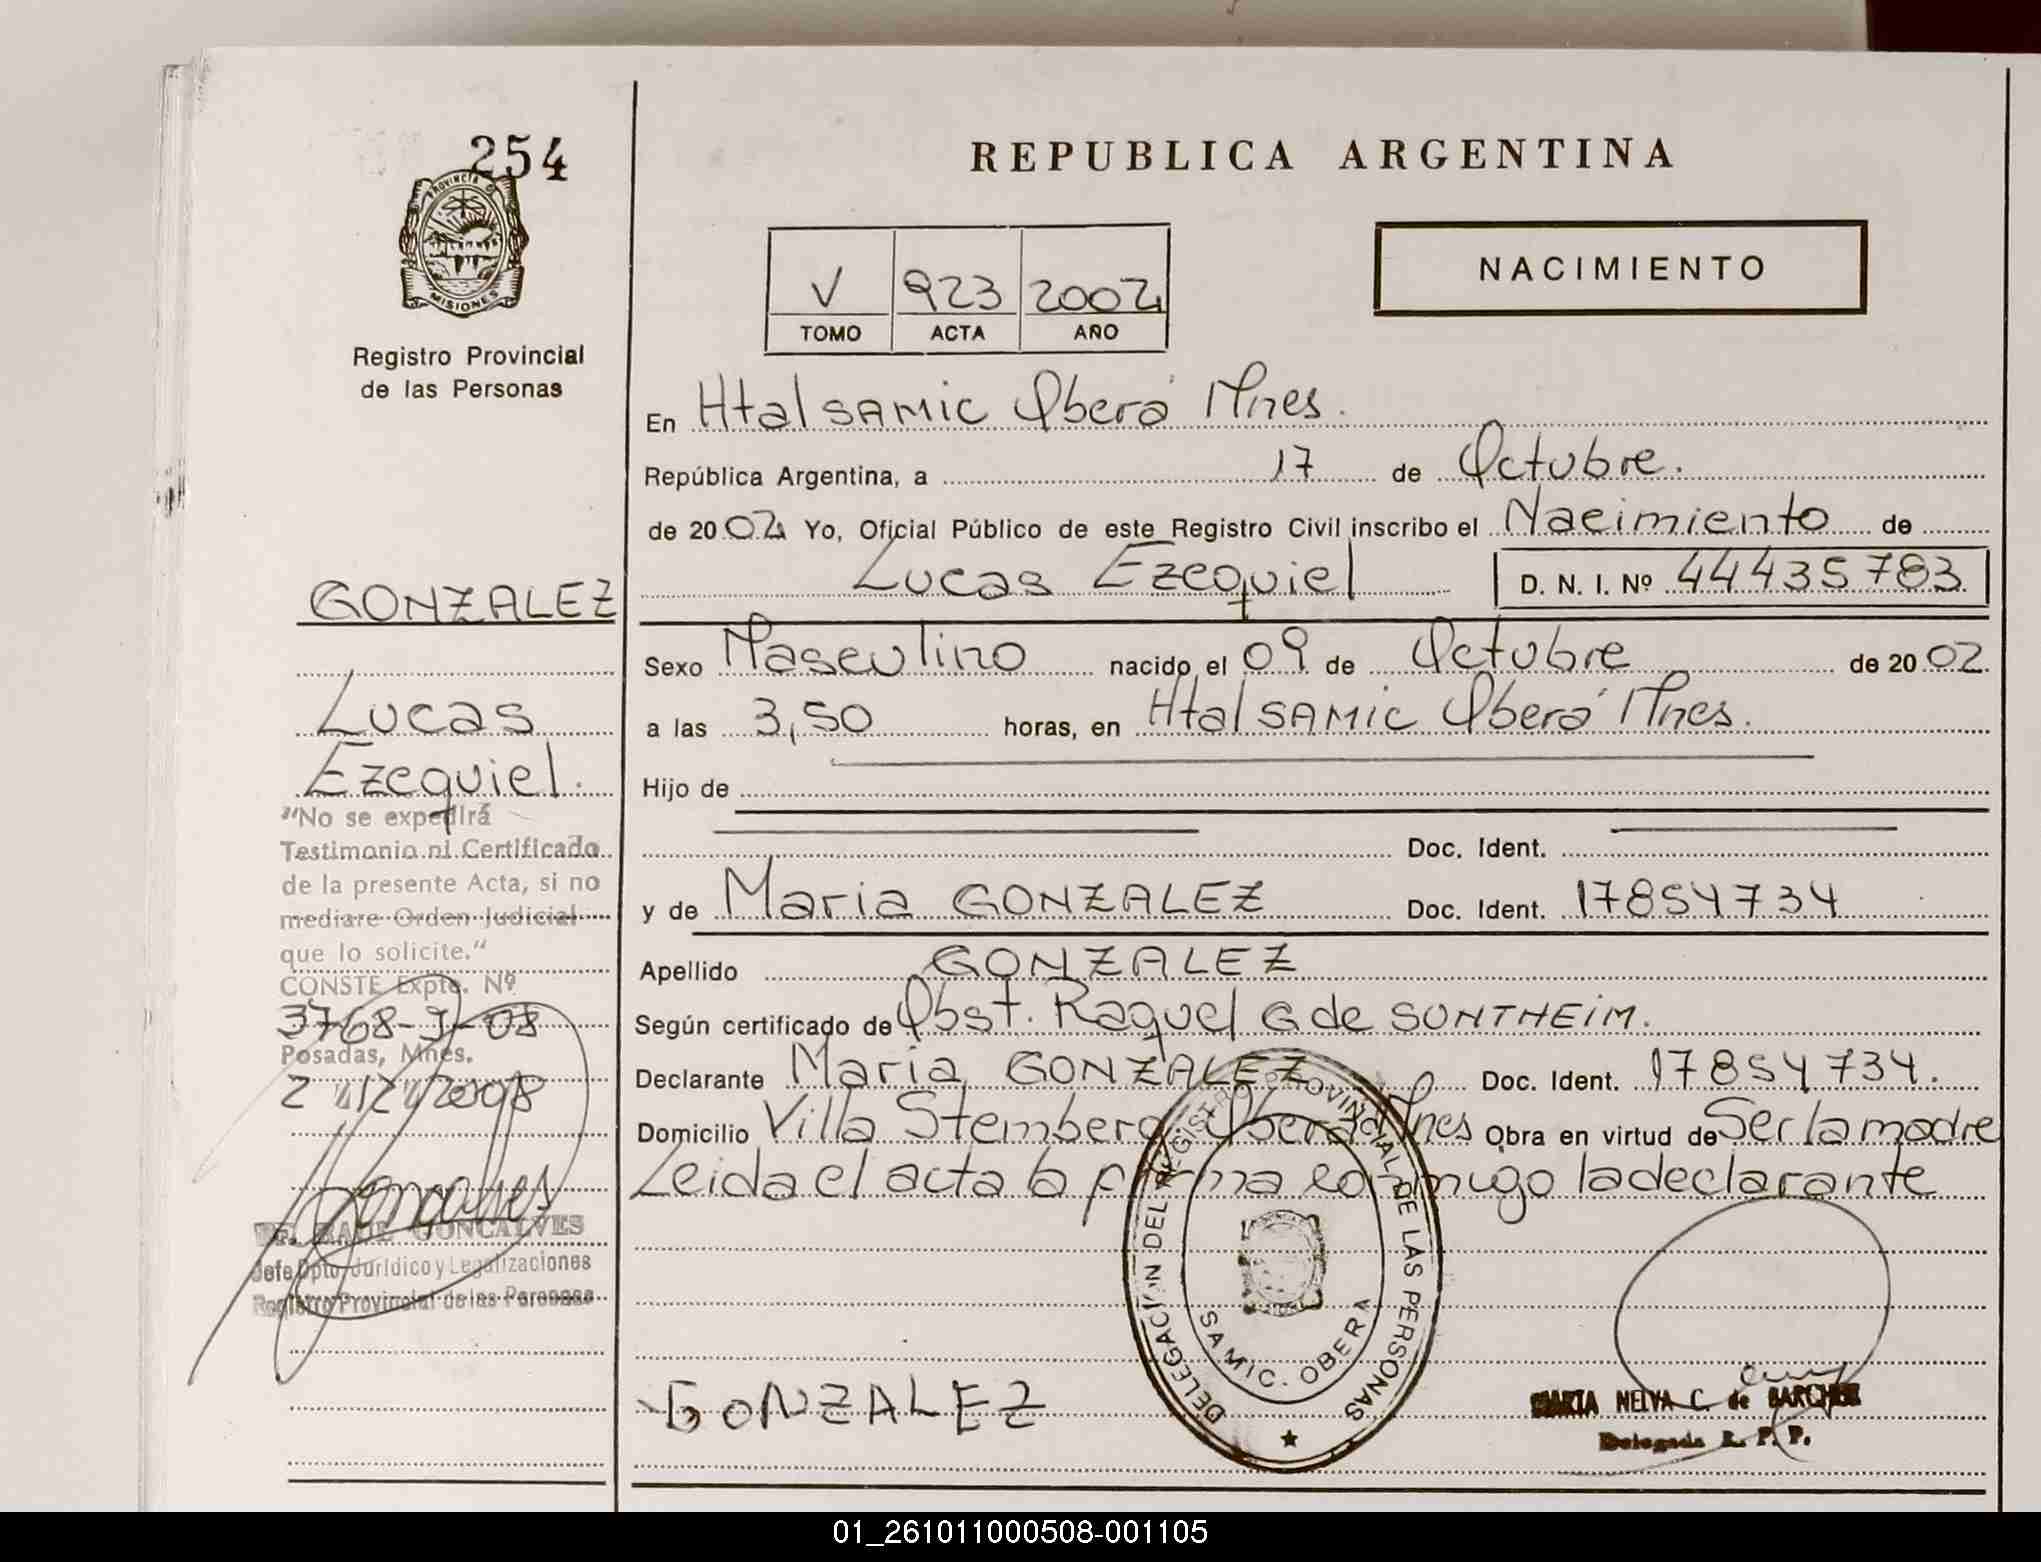 254
PROVINCIA D
MISIONES
Registro Provincial
de las Personas
GONZALEZ
Lucas
Ezequiel.
"No se expedirá
Testimonio ni Certificado
de la presente Acta, si no
mediare Orden Judicial
que lo solicite."
CONSTE Expte. Nº
3768-J-08
Posadas, Mnes.
2 /12/2008
GONCALVES
Jefe Dpto. Jurídico y Legalizaciones
Registro Provincial de las Personas
REPUBLICA ARGENTINA
V 923 2002
TOMO ACTA AÑO
NACIMIENTO
En Htal SAMIC Oberá Mnes.
República Argentina, a 17 de Octubre.
de 2002 Yo, Oficial Público de este Registro Civil inscribo el Nacimiento de
Lucas Ezequiel D. N. I. Nº 44435783
Sexo Masculino nacido el 09 de Octubre de 2002
a las 3,50 horas, en Htal SAMIC Oberá Mnes.
Hijo de
Doc. Ident.
y de Maria GONZALEZ Doc. Ident. 17854734
Apellido GONZALEZ
Según certificado de Obst. Raquel G de SONTHEIM.
Declarante Maria GONZALEZ Doc. Ident. 17854734.
Domicilio Villa Stemberg Oberá Mnes Obra en virtud de Ser la madre
Leida el acta la firma conmigo la declarante
DELEGACION DEL REGISTRO PROVINCIAL DE LAS PERSONAS
SAMIC. OBERA
GONZALEZ
MARTA NELVA C. de
Delegada R. P. P.
01_261011000508-001105